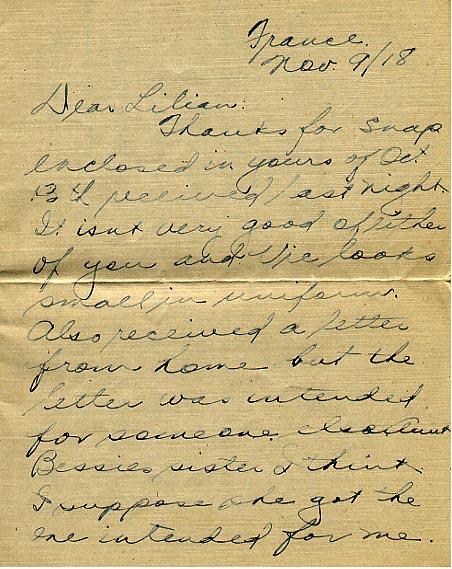 France.
Nov. 9/18
Dear Lilian:
Thanks for snap
enclosed in yours of Oct
received last night.
It isnt very good of either
of you and Vic looks
small in uniform.
Also received a letter
from home but the
letter was intended
for someone else Aunt
Bessies sister I think.
I suppose she got the
one intended for me.